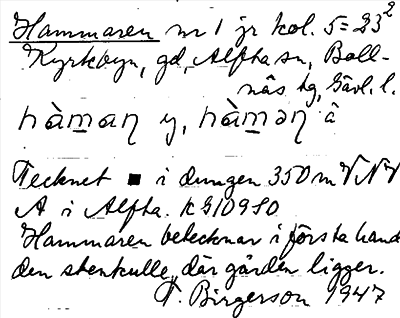 Hammaren nr 1 jr kol. 5=23²
Kyrkbyn, gd, Alfta sn, Boll-
näs tg, Gävl. l.
hàmaŋ y, hàməŋ â
Tecknet ■ i dungen 350 m VNV
A i Alfta. KG10950
Hammaren betecknar i första hand
den stenkulle, där gården ligger.
T. Birgerson 1947